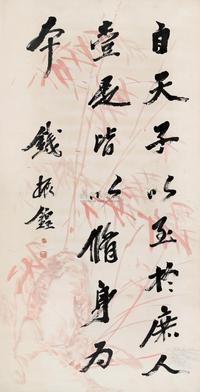 自天子以至於庶人
壹是皆以脩身为
本
錢振鍠